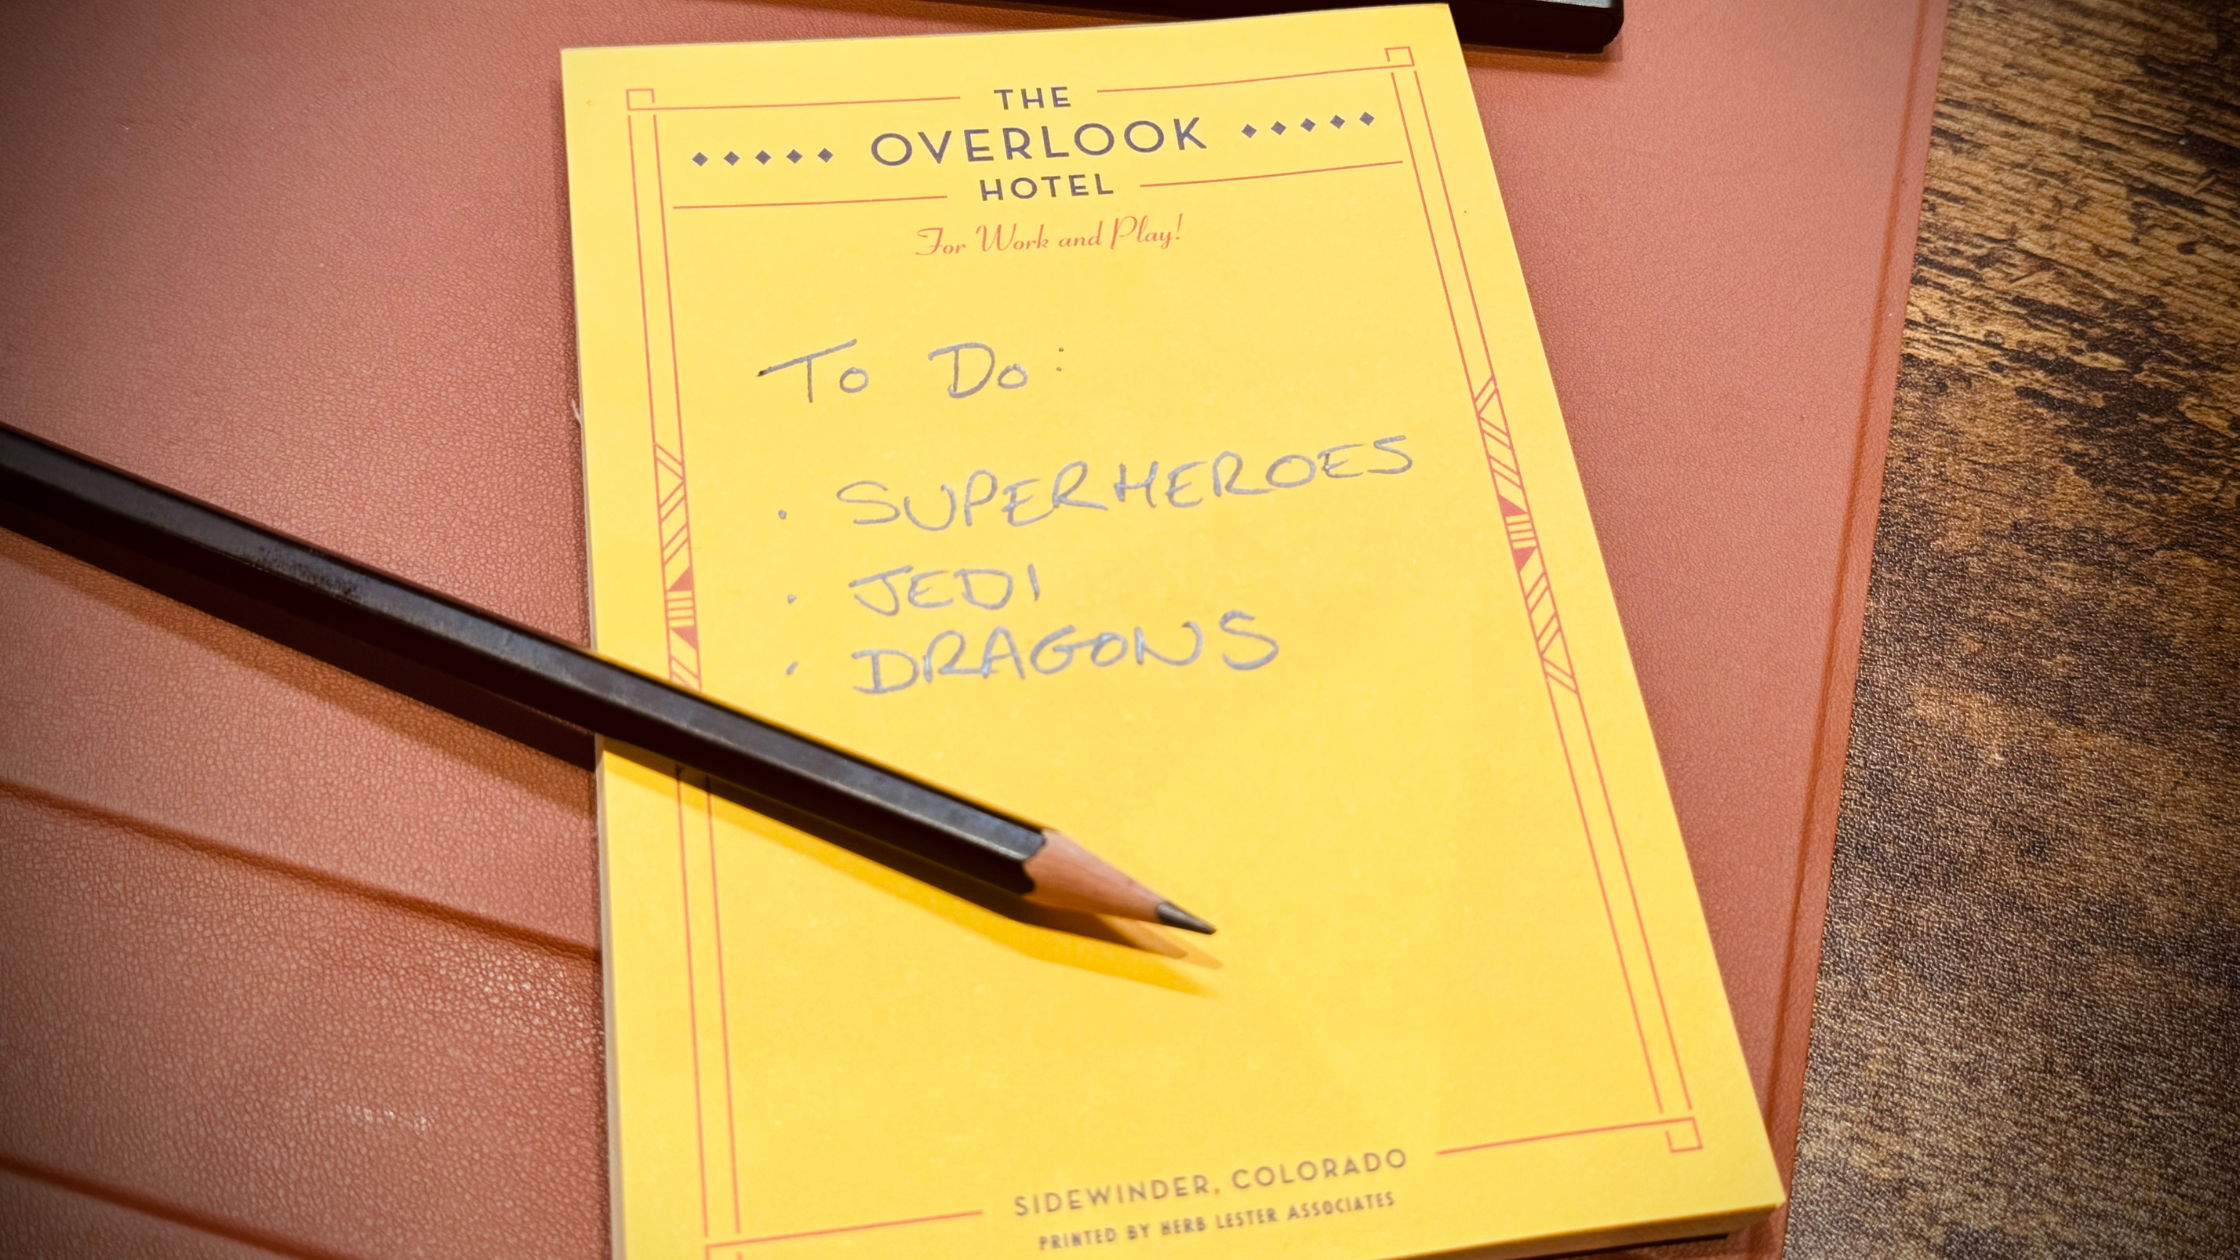 THE
OVERLOOK
HOTEL
For Work and Play!
To Do:
· SUPERHEROES
· JEDI
· DRAGONS
SIDEWINDER, COLORADO
PRINTED BY HERB LESTER ASSOCIATES